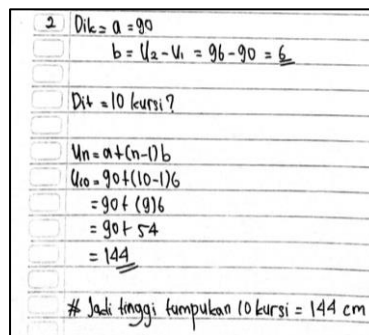 2 Dik = a = 90
b = U2 - U1 = 96 - 90 = 6
Dit = 10 kursi?
Un = a + (n-1)b
U10 = 90 + (10-1)6
= 90 + (9)6
= 90 + 54
= 144
# Jadi tinggi tumpukan 10 kursi = 144 cm